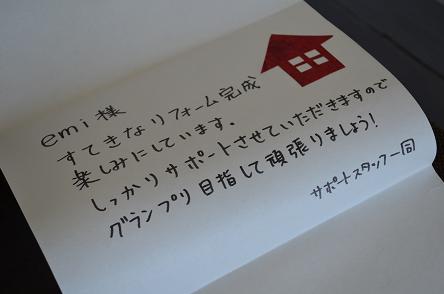 emi様
すてきなリフォーム完成
楽しみにしています。
しっかりサポートさせていただきますので
グランプリ目指して頑張りましょう!
サポートスタッフ一同